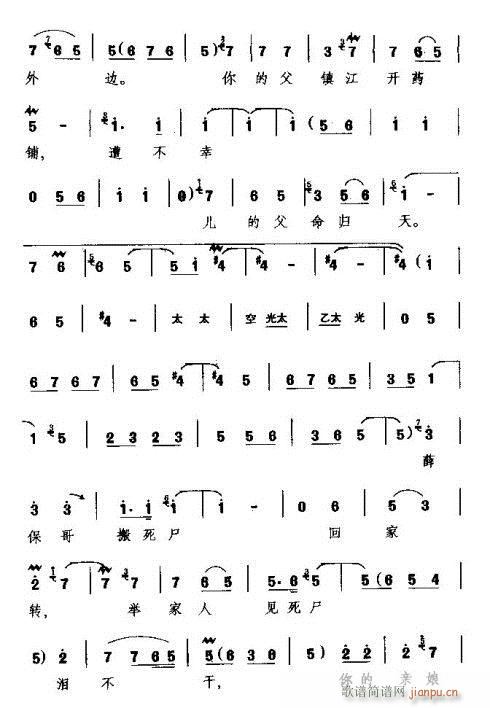 7 6 5 | 5 ( 6 7 6 | 5 ) 7 | 7 7 | 3 7 7 | 7 6 5 |
外 边。 你 的 父 镇 江 开 药
5 - | 1· 1 | 1 1 | 1 1 | ( 5 6 | 1 1 |
铺, 遭 不 幸
0 5 6 | 1 1 | 0 ) 7 | 6 5 | 3 5 6 | 1 - |
儿 的 父 命 归 天。
7 6 | 6 5 | 5 1 | #4 #4 | #4 - | #4 ( 1 |
6 5 | #4 - | 太 太 | 空 光太 | 乙太 光 | 0 5 |
6 7 6 7 | 6 5 #4 | #4 5 | 6 7 6 5 | 3 5 1 |
1 5 | 2 3 2 3 | 5 6 | 7 6 | 5 5 ) 3 |
薛
3 3 | 1· 1 | 1 1 | 1 - | 0 6 | 5 3 |
保 哥 搬 死 尸 回 家
2 7 | 7 7 | 7 6 5 | 5· 6 5 | 5 ( 6 5 4 |
转, 举 家 人 见 死 尸
5 ) 2 | 7 7 6 5 | 5 ( 6 3 6 | 5 ) 2 | 2 2 |
泪 不 干, 你 的 亲 娘
歌谱简谱网
jianpu.cn